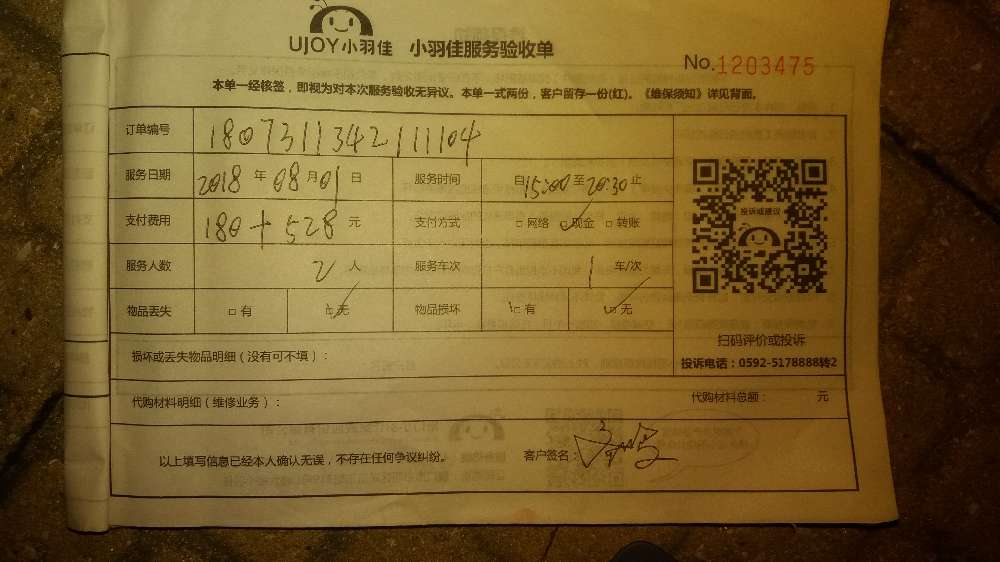 UJOY小羽佳 小羽佳服务验收单
No.1203475
本单一经核签，即视为对本次服务验收无异议。本单一式两份，客户留存一份(红)。《维保须知》详见背面。
订单编号 180731134211104
服务日期 2018 年 08 月 01 日 服务时间 自 15:00 至 20:30 止
支付费用 180+528 元 支付方式 □ 网络 ☑ 现金 □ 转账
投诉或建议
服务人数 2 人 服务车次 1 车/次
物品丢失 □ 有 ☑ 无 物品损坏 □ 有 ☑ 无
扫码评价或投诉
损坏或丢失物品明细（没有可不填）：
投诉电话：0592-5178888转2
代购材料明细（维修业务）： 代购材料总额： 元
以上填写信息已经本人确认无误，不存在任何争议纠纷。 客户签名：